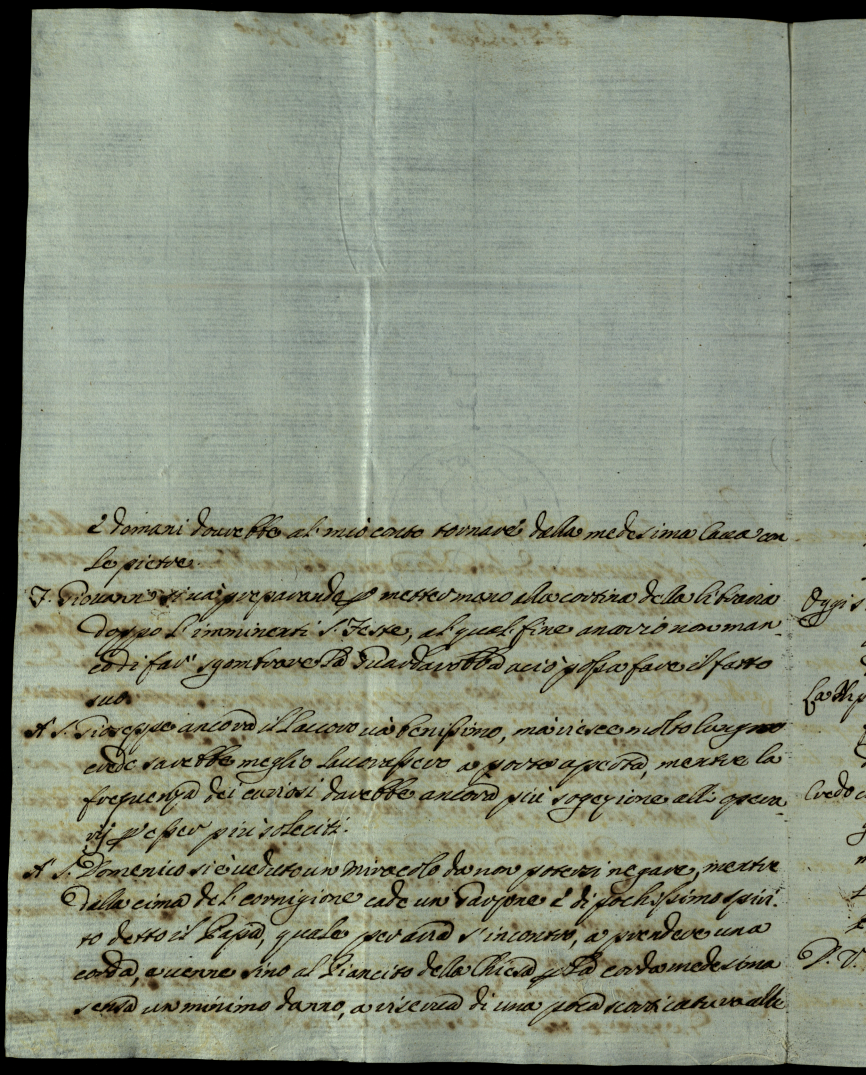 e domani dovrebbe al mio conto tornare dalla medesima Cava con
le pietre.
S. Giovanni si và preparando p metter mano alla cortina della libraria
doppo l'imminenti S. Feste, al qual fine ancor io non man-
co di far sgombrare la Guardarobba acciò possa fare il fatto
suo.
A S. Gioseppe ancora il lavoro và benissimo, mà riesce molto lungo
crede sarebbe meglio lavorassero a porte aperta, mentre la
frequenza dei curiosi darebbe ancora più sogezione alli opera-
rij p esser più soleciti.
A S. Domenico si è veduto un miracolo da non potersi negare, mentre
dalla cima del cornigione cade un Garzone è di pochissimo spiri-
to detto il Papa, quale per aria s'incontrò, a prendere una
corda, e venne sino al Piancito della Chiesa p la corda medesima
senza un minimo danno, a riserva di una poca scorticatura alle
Oggi s
La
Credo
D. V.